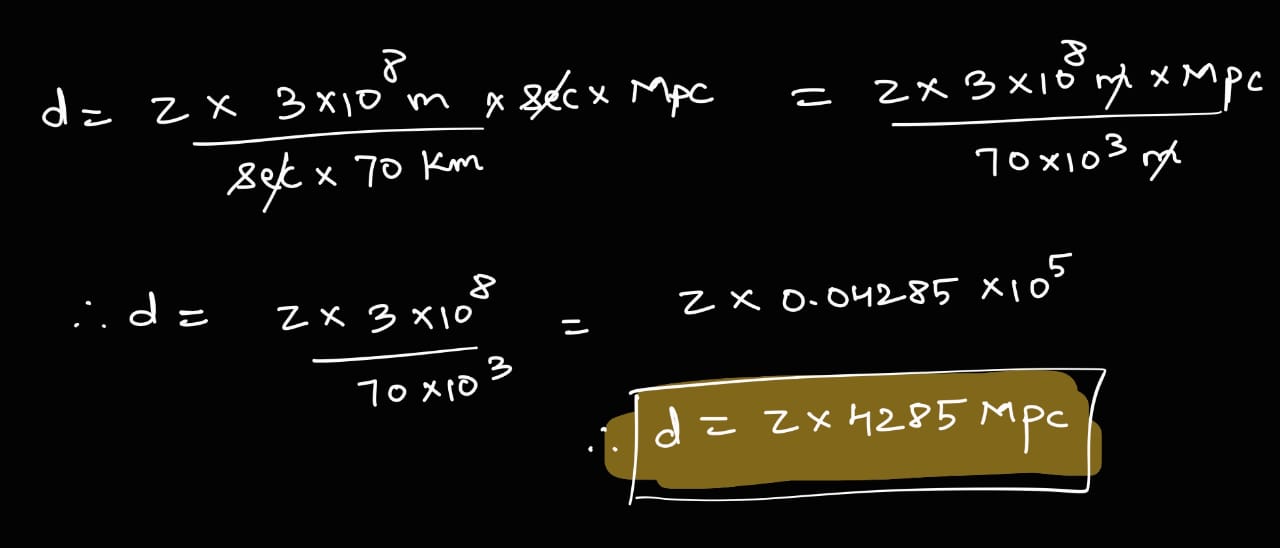 d = z × 3×10⁸ m × sec × Mpc / sec × 70 Km = z × 3×10⁸ m × Mpc / 70×10³ m
∴ d = z × 3×10⁸ / 70×10³ = z × 0.04285 ×10⁵
∴ d = z × 4285 Mpc